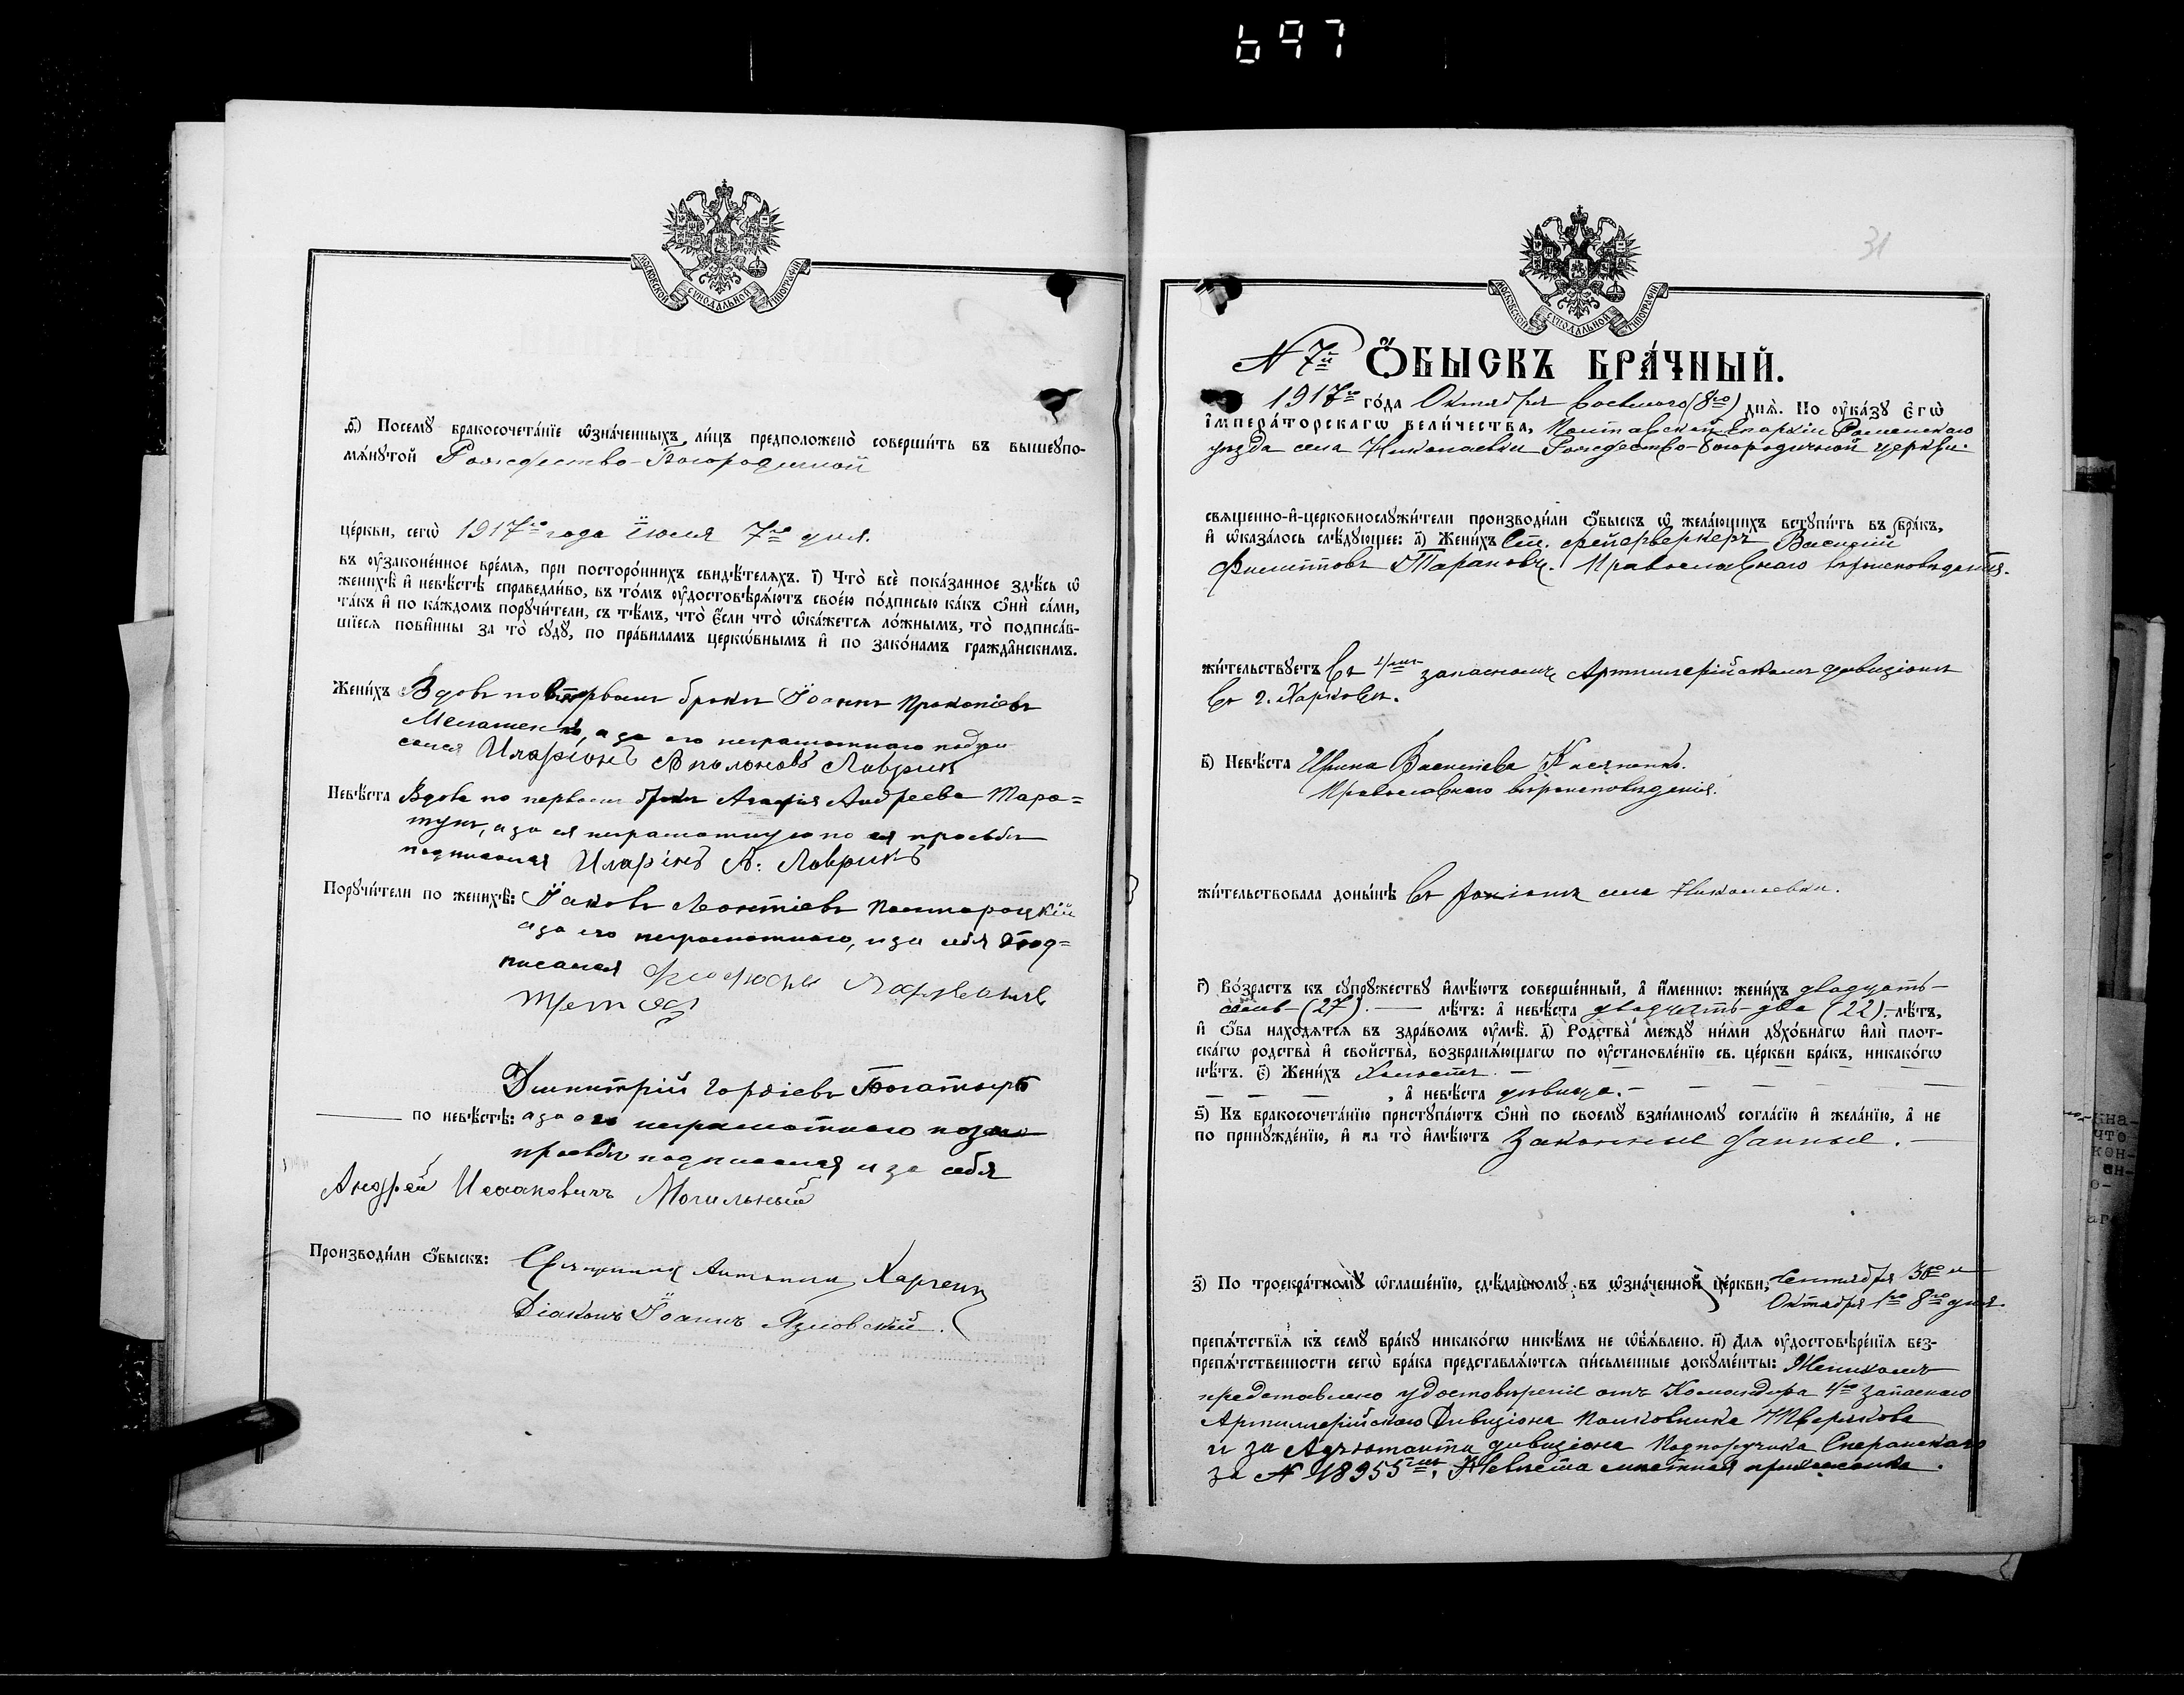 697
МОСКОВСКОЙ СУНОДАЛЬНОЙ ТИПОГРАФІИ
ѳ҃) Посемꙋ бракосочета́нїе ѡ҆зна́ченныхъ ли́цъ предположено̀ соверши́ть въ вышеꙋпо-
мѧ́нꙋтой Рождество-Богородичной
це́ркви, сегѡ̀ 1917го года іюля 7го дня.
въ ᲂу҆законе́нное вре́мѧ, при посторо́ннихъ свидѣ́телѧхъ. і҃) Что̀ всѐ пока́занное здѣ́сь ѡ҆
женихѣ̀ и҆ невѣ́стѣ справедли́во, въ то́мъ ᲂу҆достовѣрѧ́ютъ свое́ю по́дписью ка́къ ѻ҆нѝ са́ми,
та́къ и҆ по ка́ждомъ порꙋчи́тели, съ тѣ́мъ, что̀ є҆́сли что̀ ѡ҆ка́жетсѧ ло́жнымъ, то̀ подписа́в-
шїесѧ пови́нны за то̀ сꙋдꙋ̀, по пра́виламъ церко́внымъ и҆ по зако́намъ гражда́нскимъ.
Жени́хъ Вдовъ по первомъ бракѣ Іоаннъ Прокопіевъ
а за его неграмотнаго подпи
сался Иларіонъ Аполоновъ Лаврикъ
Невѣ́ста Вдова по первомъ бракѣ Агафія Андреева Тара=
а за ея неграмотную по ея просьбѣ
подписался Иларіонъ А. Лаврикъ
Порꙋчи́тели по женихѣ̀: Іаковъ Леонтіевъ
а за его неграмотнаго, и за себя под=
писался
Димитрій Гордіевъ Богатырь
по невѣ́стѣ: а за его неграмотнаго
просьбѣ подписался и за себя
Андрей Исааковичъ Могильный
Производи́ли ѻ҆́быскъ: Священникъ Антоній Харченко
Діаконъ Іоаннъ Язловскій.
31
МОСКОВСКОЙ СУНОДАЛЬНОЙ ТИПОГРАФІИ
N 7й Ѻ҆́БЫСКЪ БРА́ЧНЫЙ.
1917го го́да Октября восьмого (8го) днѧ̀. По ᲂу҆ка́зꙋ Є҆гѡ̀
І҆мпера́торскагѡ вели́чества, Полтавской Епархіи Роменскаго
уѣзда села Николаевки Рождество-Богородичной церкви.
сващенно-и҆-церковнослꙋжи́тели производи́ли ѻ҆́быскъ ѡ҆ жела́ющихъ встꙋпи́ть въ бра́къ,
и҆ ѡ҆каза́лось слѣ́дꙋющее: а҃) Жени́хъ Ст. фейерверкеръ Василій
Филиповъ Тарановъ. Православнаго вѣроисповѣданія.
жи́тельствꙋетъ въ 4мъ запасномъ Артиллерійскомъ дивизіонѣ
въ г. Харьковѣ.
в҃) Невѣ́ста Ирина Васильева
Православнаго вѣроисповѣданія.
жи́тельствовала доны́нѣ въ районѣ села Николаевки.
г҃) Во́зрастъ къ сꙋпрꙋжествꙋ и҆мѣ́ютъ соверше́нный, а҆ и҆́меннѡ: жени́хъ двадцать-
семь (27). лѣ́тъ: а҆ невѣ́ста двадцать-два (22).-лѣ́тъ,
и҆ ѻ҆́ба нахо́дѧтсѧ въ здра́вомъ ᲂу҆мѣ̀. д҃) Родства̀ междꙋ̀ ни́ми дꙋхо́внагѡ и҆лѝ плот-
ска́гѡ родства̀ и҆ сво́йства̀, возбранѧ́ющагѡ по ᲂу҆становле́нїю св. це́ркви бра́къ, никако́гѡ
нѣ́тъ. є҃) Жени́хъ Холостъ. —
, а҆ невѣ́ста дѣвица. —
ѕ҃) Къ бракосочета́нїю приступа́ютъ ѻ҆нѝ по своемꙋ̀ взаи́мномꙋ согла́сїю и҆ жела́нїю, а҆ не
по принꙋжде́нїю, и҆ на то̀ и҆мѣ́ютъ законные данные. —
з҃) По троекра́тномꙋ ѡ҆глаше́нїю, сдѣ́ланномꙋ въ ѡ҆зна́ченной це́ркви, Сентября 30го и
Октября 1го 8го дня.
препѧ́тствїѧ къ семꙋ̀ бра́кꙋ никако́гѡ никѣ́мъ не ѡ҆бъѧ́влено. и҃) Для ᲂу҆достовѣре́нїѧ без-
препѧ́тственности сегѡ̀ бра́ка представлѧ́ются пи́сьменные докꙋме́нты: Женихомъ
представлено удостовѣреніе отъ Командира 4го запаснаго
Артиллерійскаго Дивизіона Полковника Тверикова
и за Адъютанта дивизіона Подпоручика Сперанскаго
за N 18955мъ. Невѣста мѣстная прихожанка.